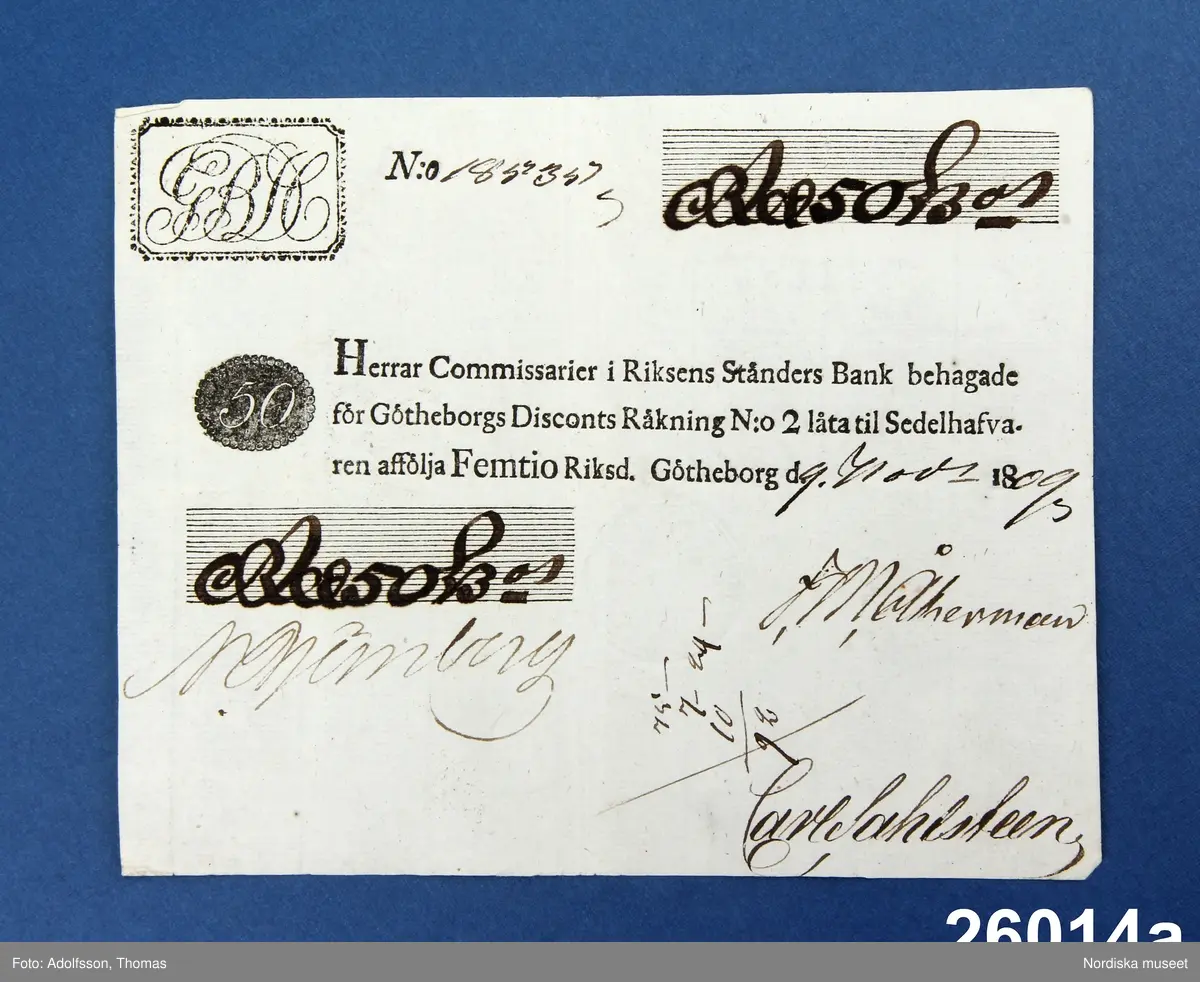 GBH
N:o
50
Herrar Commissarier i Riksens Stånders Bank behagade
för Götheborgs Disconts Råkning N:o 2 låta til Sedelhafva-
ren affölja Femtio Riksd. Götheborg d 9. Nov 1809
50
50
J. M. Åkerman
Carl Sahlsteen
26014a
Foto: Adolfsson, Thomas
Nordiska museet